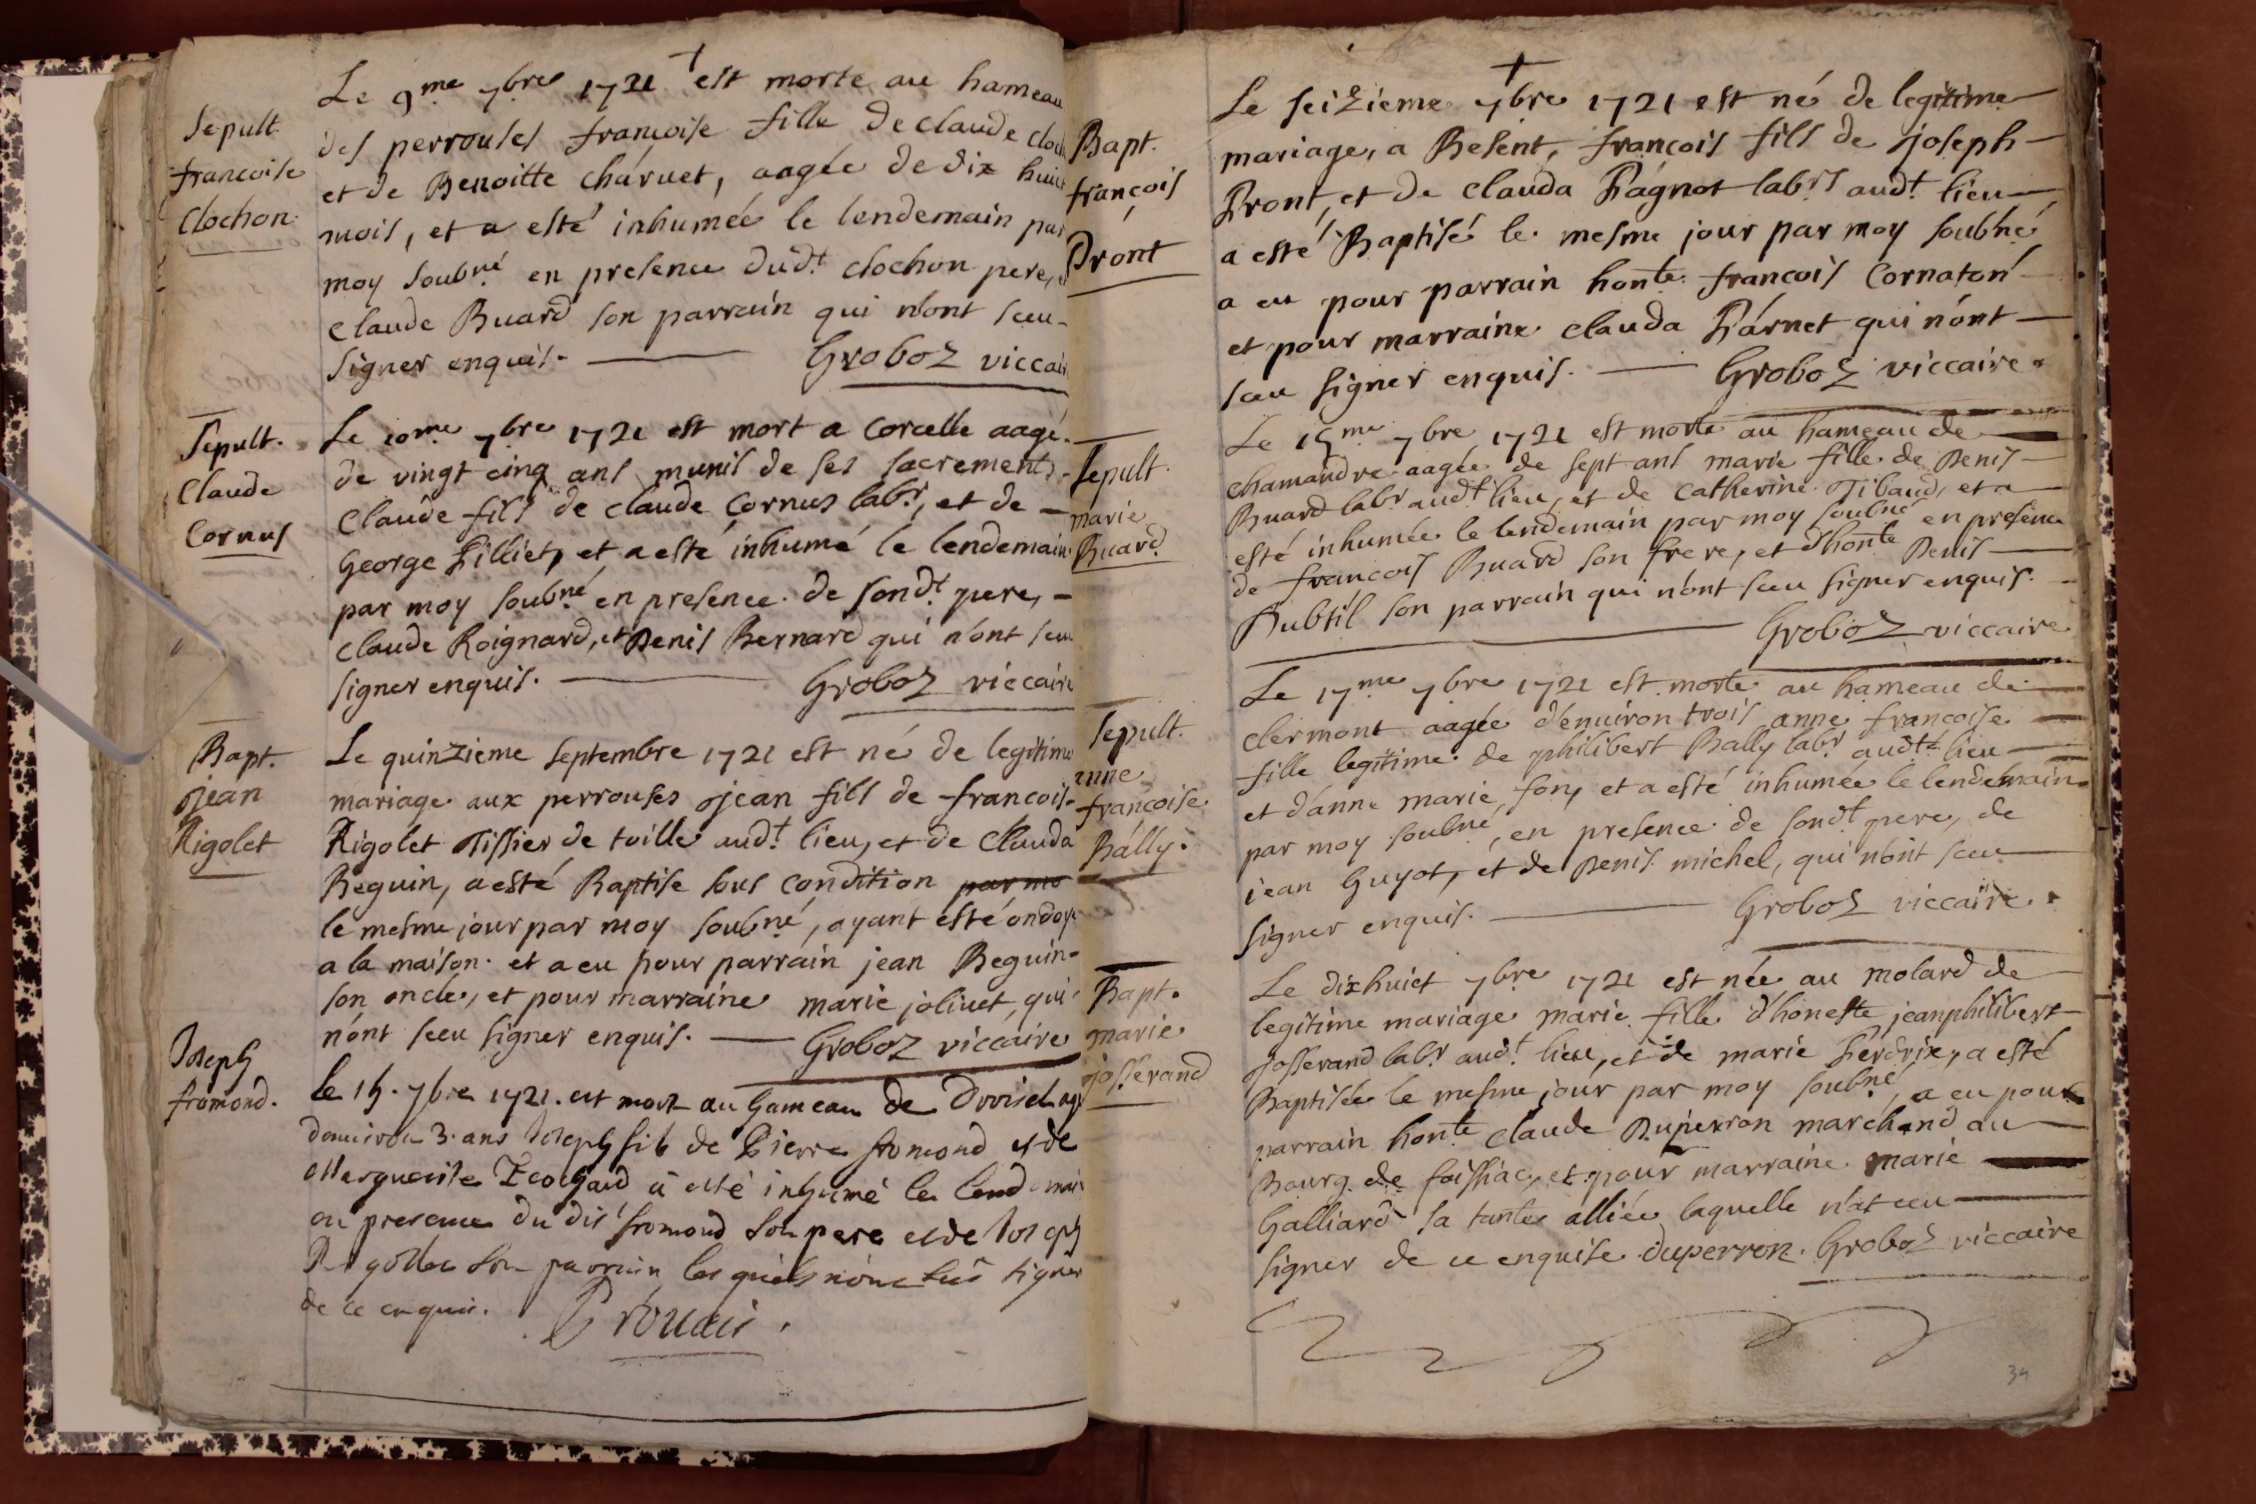 Sepult.
francoise
Clochon.
Le 9me 7bre 1721 est morte au hameau
des perrouses francoise fille de claude cloch
et de Benoitte Charuet, aagée de dix huict
mois, et a esté inhumée le lendemain par
moy soubné en presence dud.t clochon pere,
claude Buard son parrain qui n'ont sceu
signer enquis. Groboz viccair
Sepult.
Claude
Cornus
Le 10me 7bre 1721 est mort a Corcelle aagé
de vingt cinq ans munis de ses sacrements
Claude fils de claude Cornus labr, et de
George Filliet, et a esté inhumé le lendemain
par moy soubné en presence de sond.t pere,
claude Roignard, et Denis Bernard qui n'ont sceu
signer enquis. Groboz viccaire
Bapt.
Jean
Rigolet
Le quinzieme septembre 1721 est né de legitime
mariage aux perrouses Jean fils de francois
Rigolet Tissier de toille aud.t lieu, et de Clauda
Beguin, a esté Baptise sous condition par mo
le mesme jour par moy soubné, ayant esté ondoye
a la maison. et a eu pour parrain jean Beguin
son oncle, et pour marraine marie joliuet, qui
n'ont sceu signer enquis. Groboz viccaire
Joseph
fromond.
le 15. 7bre 1721. est mort au hameau de
denuiron 3. ans Joseph fils de Pierre fromond et de
Marguerite a esté inhumé le lendemain
en presence du dit fromond son pere et de Joseph
son parrain lesquels n'ont sceu signer
de ce enquis.
Bapt.
françois
Pront
Le seizieme 7bre 1721 est né de legitime
mariage, a Besent, françois fils de Joseph
Pront, et de Clauda Pagnot labrs aud.t lieu
a esté Baptisé le mesme jour par moy soubné
a eu pour parrain honte francois Cornaton
et pour marraine clauda Parnet qui n'ont
sceu signer enquis. Groboz viccaire
Sepult.
marie
Buard
Le 15me 7bre 1721 est morte au hameau de
chamandre aagée de sept ans marie fille de Denis
Buard labr aud.t lieu, et de Catherine Tibaud, et a
esté inhumée le lendemain par moy soubné en presence
de francois Buard son frere, et d'honte Denis
Dubtil son parrain qui n'ont sceu signer enquis.
Groboz viccaire
Sepult.
anne
francoise
Bally.
Le 17me 7bre 1721 est morte au hameau de
clermont aagée d'enuiron trois anne francoise
fille legitime de philibert Bally labr aud.t lieu
et d'anne marie fon, et a esté inhumée le lendemain
par moy soubné, en presence de sond.t pere, de
jean Guyot, et de Denis michel, qui n'ont sceu
signer enquis. Groboz viccaire
Bapt.
marie
josserand
Le dixhuict 7bre 1721 est née au molard de
legitime mariage marie fille d'honeste jeanphilibert
Josserand labr aud.t lieu, et de marie Perdrix, a esté
Baptisée le mesme jour par moy soubné, a eu pour
parrain honte claude Duperron marchand au
Bourg de foissiac, et pour marraine marie
Galliard sa tante alliée laquelle n'at sceu
signer de ce enquise. duperron. Groboz viccaire
34